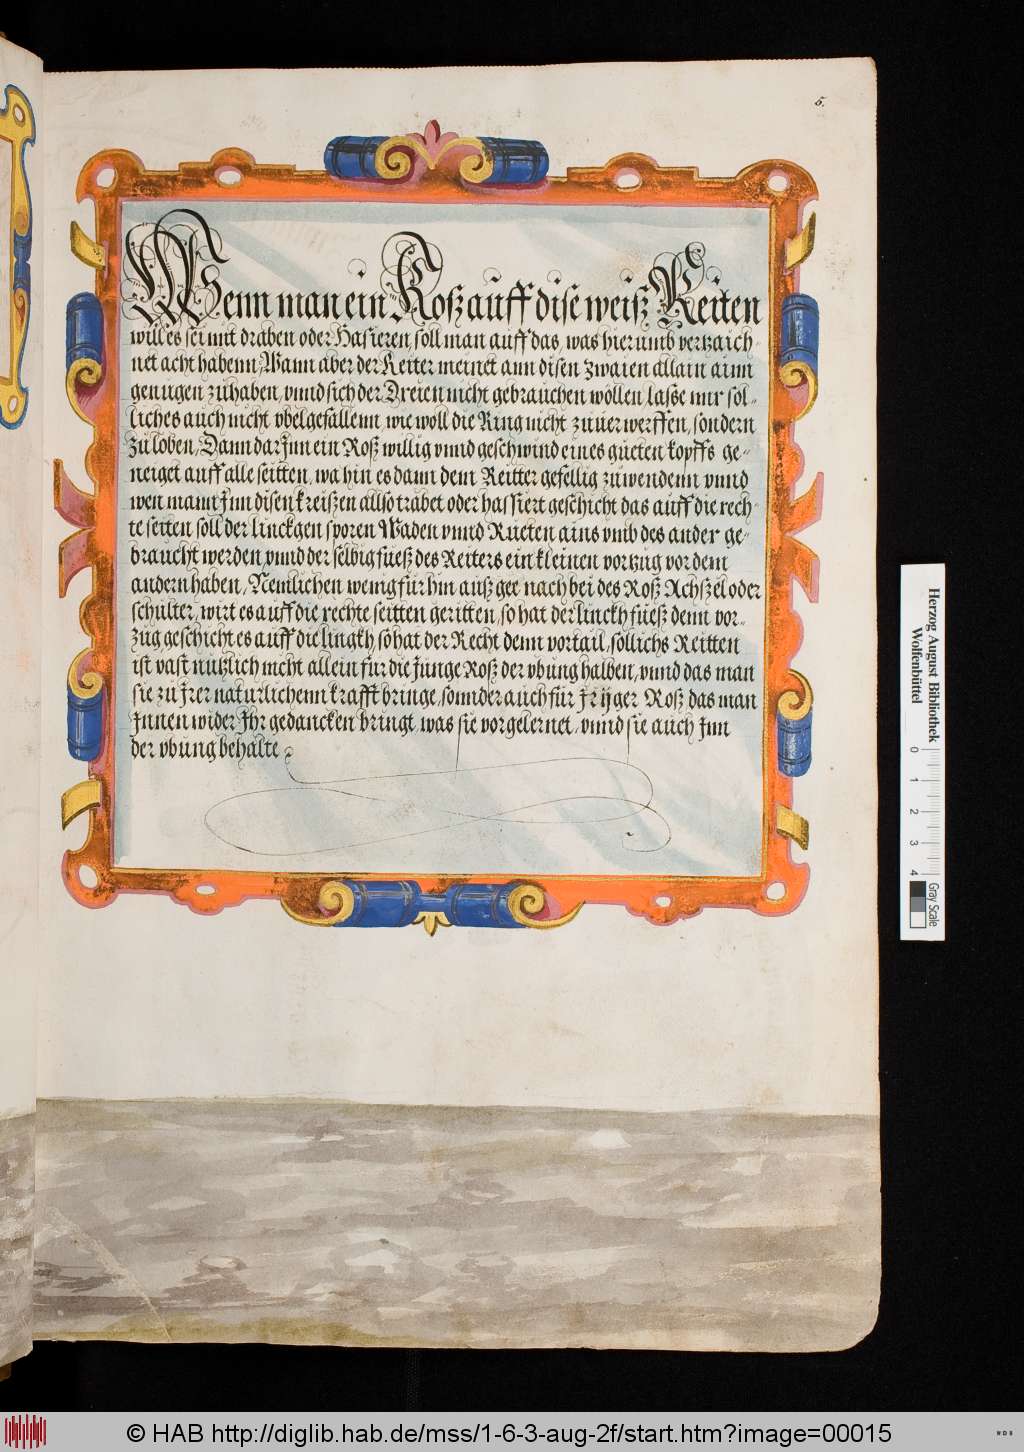 5.
Wenn man ein Roß auff dise weiß Reiten
will es sei mit draben oder Hasieren, soll man auff das, was hierumb vertzaich-
net acht habenn, Wann aber der Reiter meinet ann disen zwaien allain ainn
genugen zuhaben, vnnd sich der Dreien nicht gebrauchen wöllen, lasse mir sol-
liches auch nicht vbelgefallenn, wie woll die Ring nicht zuuerwerffen, sondern
zu loben, Dann dar Jnn ein Roß willig vnnd geschwind eines gueten kopffs ge-
neiget auff alle seitten, wa hin es dann dem Reitter gefellig zuwendenn vnnd
wen mann Jnn disen kreißen allso trabet oder hassiert geschicht das auff die rech-
te seiten soll der linckgen sporen Waden vnnd Rueten ains vmb des ander ge-
braucht werden, vnnd der selbig fueß des Reiters ein kleinen vorzug vor dem
andern haben, Nemlichen wenig für hin auß gee nach bei des Roß Achszel oder
schulter, wirt es auff die rechte seitten geritten, so hat der linckh fueß denn vor-
zug geschicht es auff die lingkh, so hat der Recht denn vortail, sollichs Reitten
ist vast nutzlich nicht allein für die Junge Roß der vbung halben, vnnd das man
sie zu Jrer naturlichenn krafft bringe, sonnder auch für Jriger Roß das man
Jnnen wider Jhr gedancken bringt, was sie vorgelernet, vnnd sie auch Jnn
der vbung behalte
Herzog August Bibliothek
Wolfenbüttel
0 1 2 3 4
Gray Scale
© HAB http://diglib.hab.de/mss/1-6-3-aug-2f/start.htm?image=00015